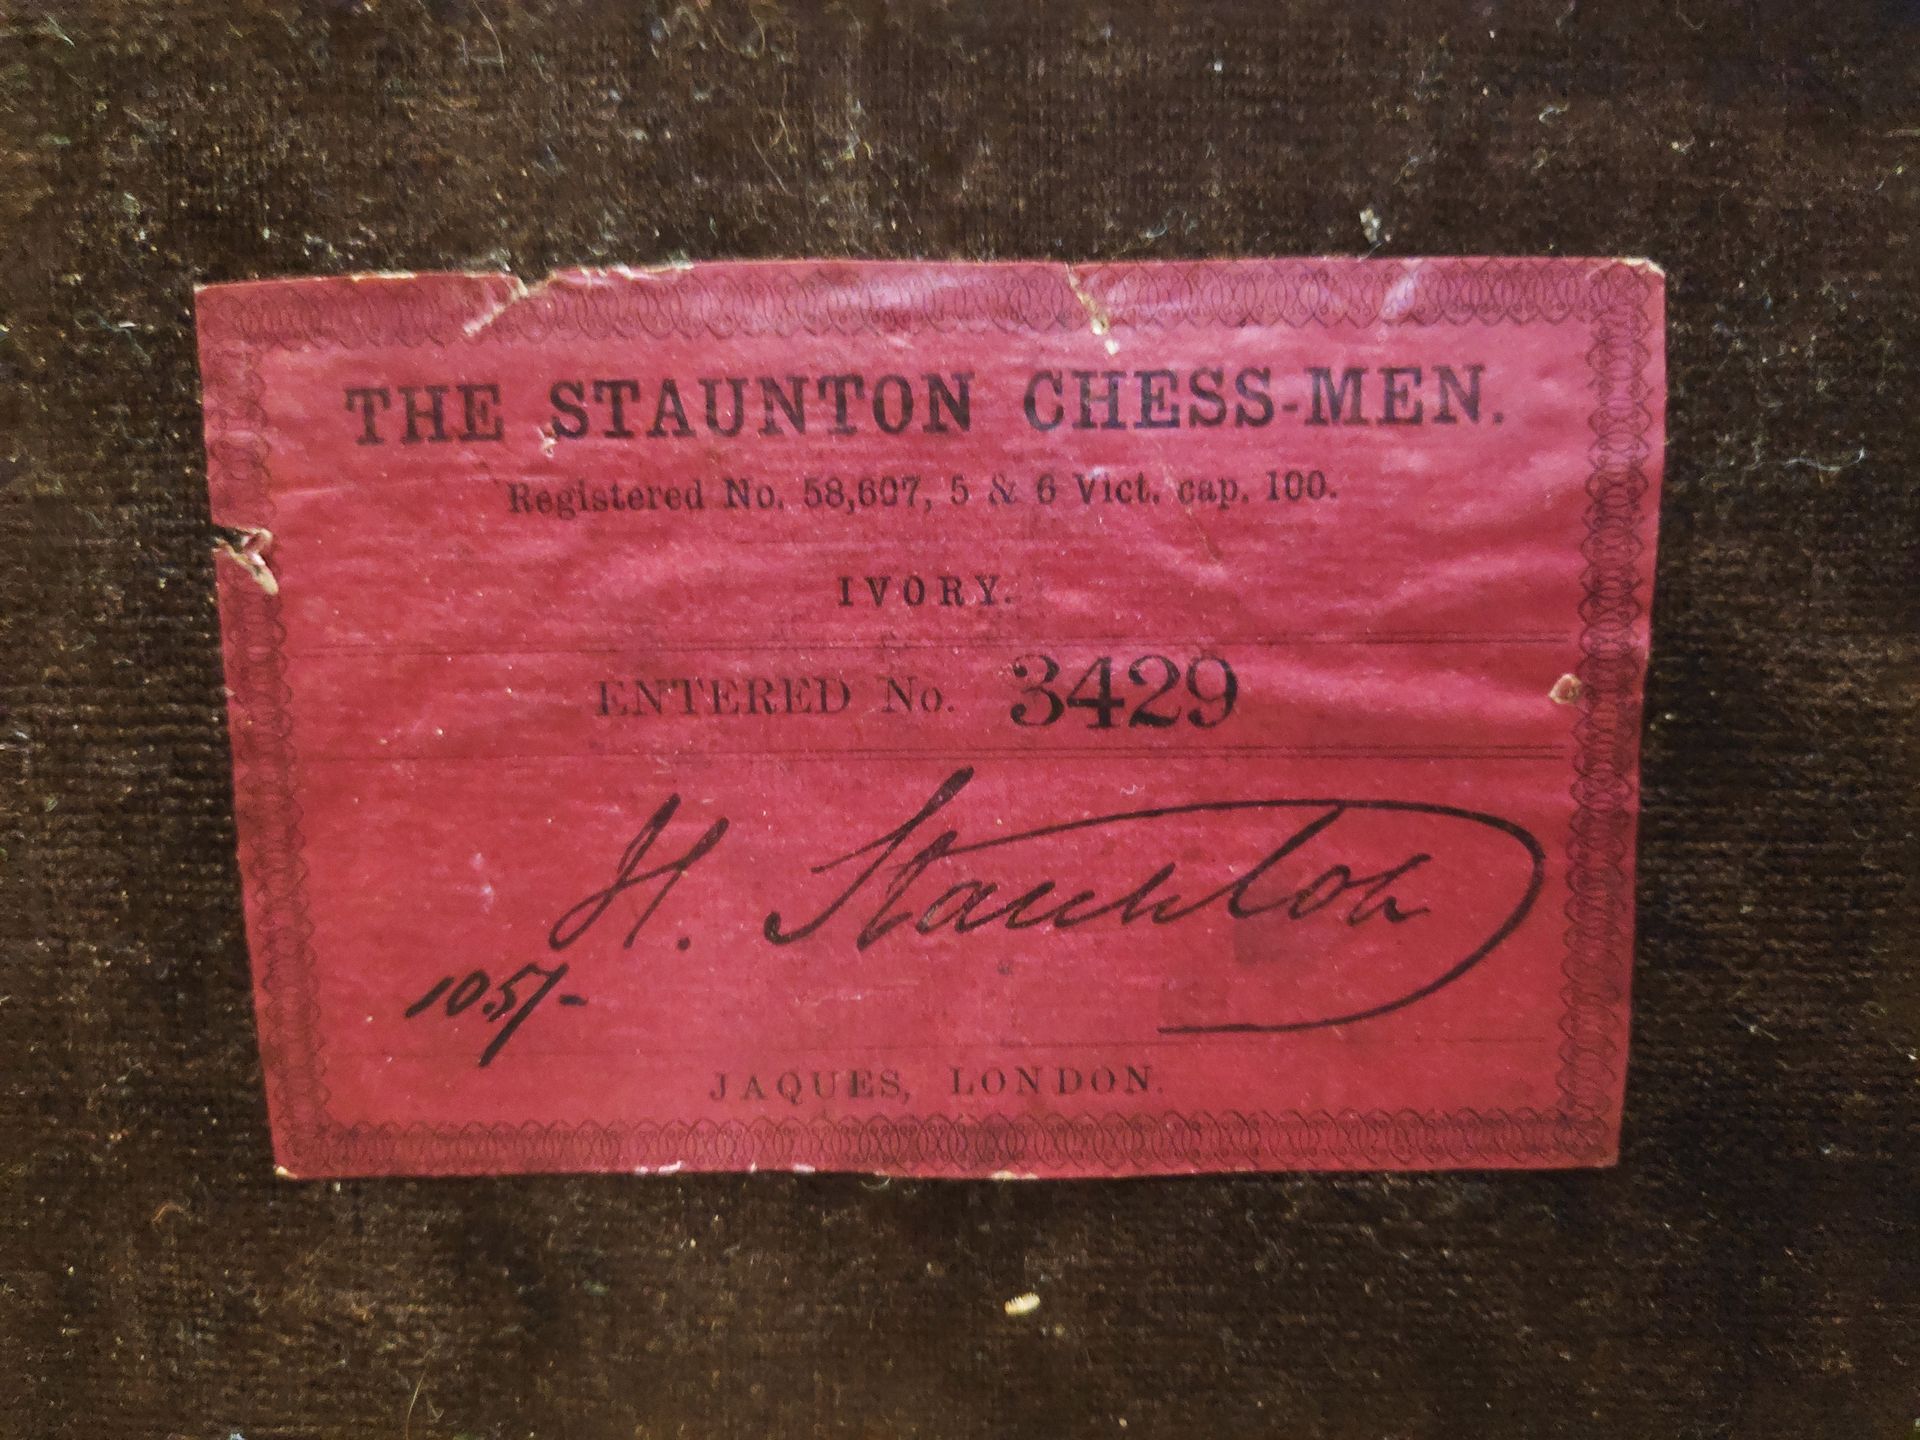 THE STAUNTON CHESS-MEN.
Registered No. 58,607, 5 & 6 Vict. cap. 100.
IVORY.
ENTERED No. 3429
H. Staunton
105/-
JAQUES, LONDON.